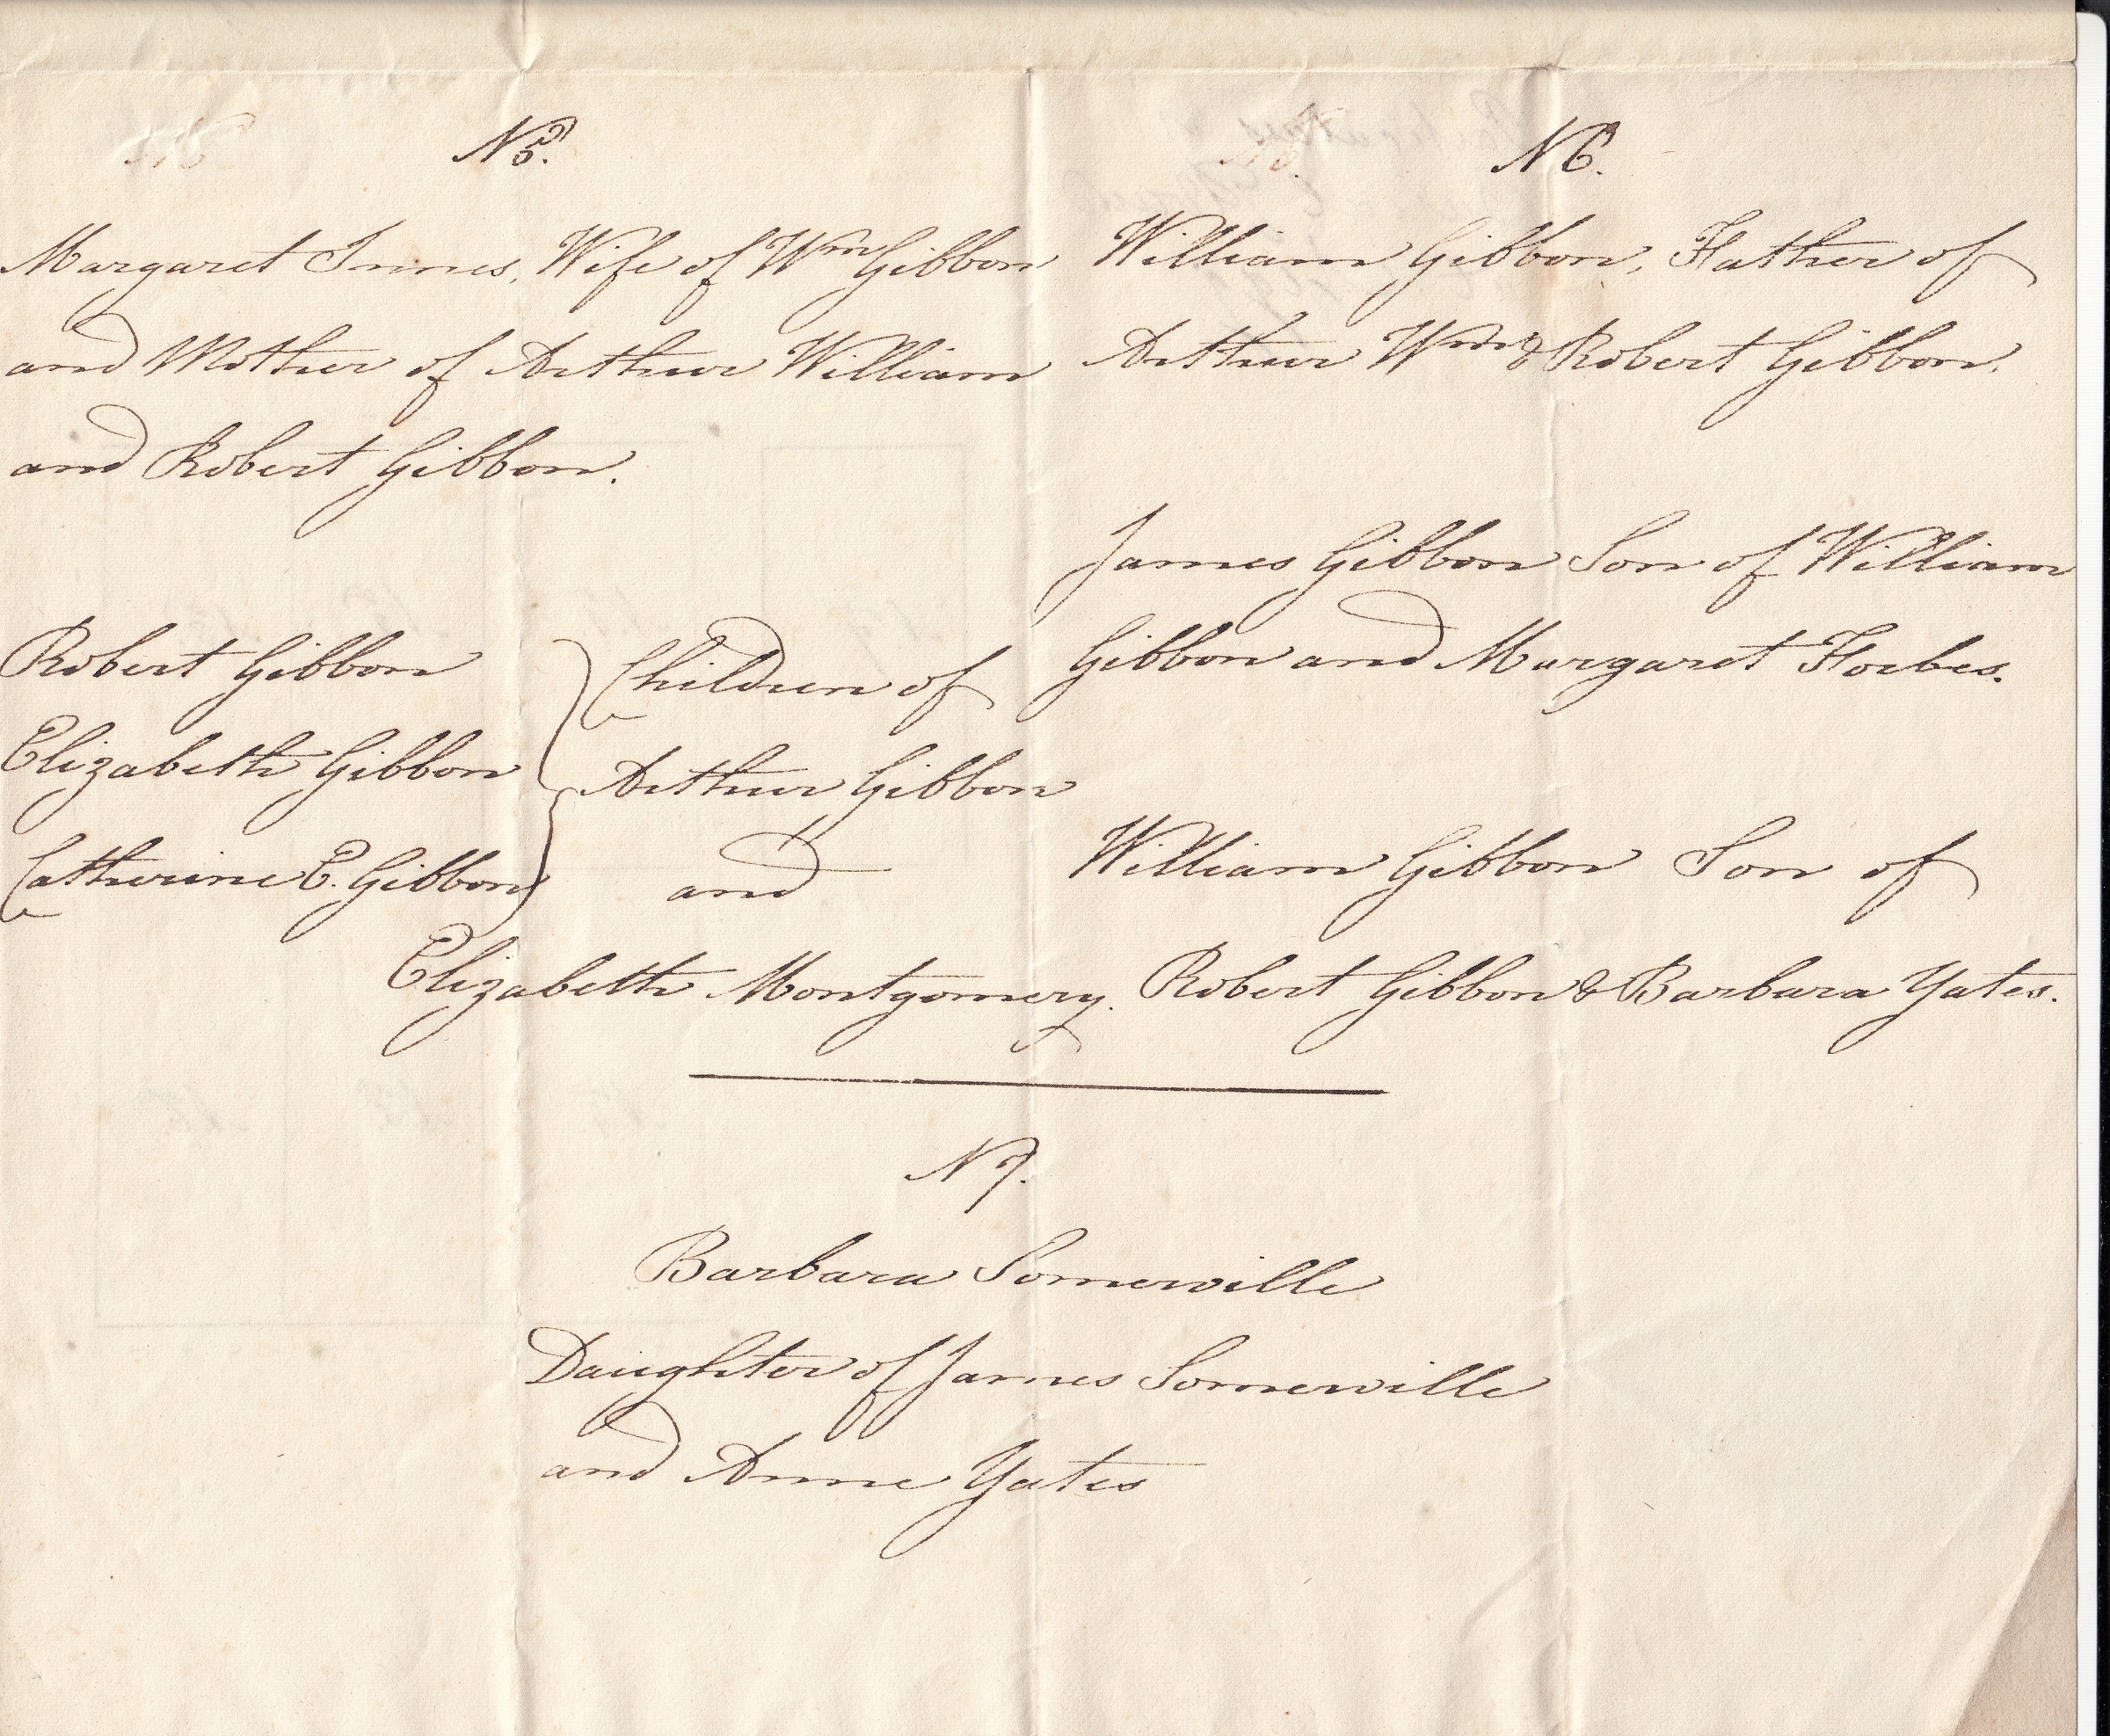 No 5.
Margaret Innes, Wife of Wm Gibbon
and Mother of Arthur William
and Robert Gibbon.
Robert Gibbon
Elizabeth Gibbon
Catherine E. Gibbon
Children of
Arthur Gibbon
and
Elizabeth Montgomery.
N 6.
William Gibbon, Father of
Arthur Wm & Robert Gibbon.
James Gibbon Son of William
Gibbon and Margaret Forbes.
William Gibbon Son of
Robert Gibbon & Barbara Yates.
N 7.
Barbara Somerville
Daughter of James Somerville
and Anne Yates